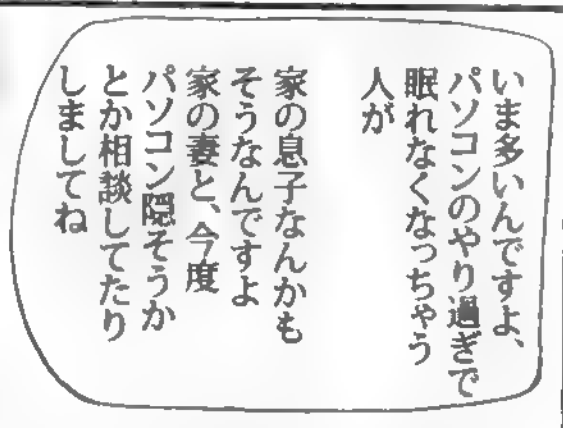 いま多いんですよ、
パソコンのやり過ぎで
眠れなくなっちゃう
人が
家の息子なんかも
そうなんですよ
家の妻と、今度
パソコン隠そうか
とか相談してたり
しましてね